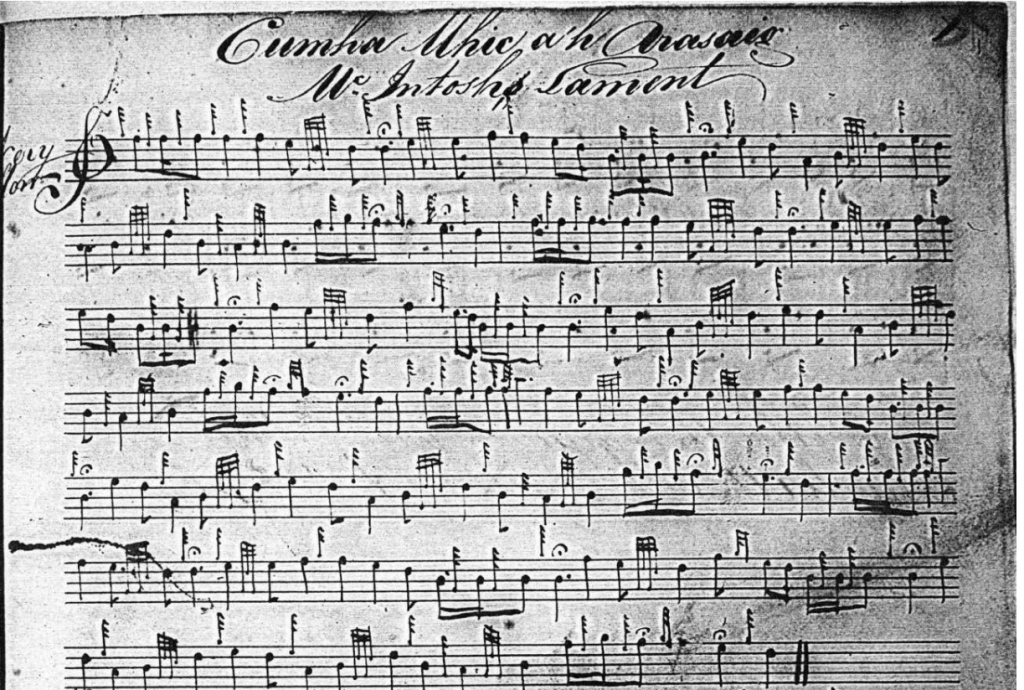 Cumha Mhic a'h Arasaig
Mc Intosh's Lament
Very
Slow